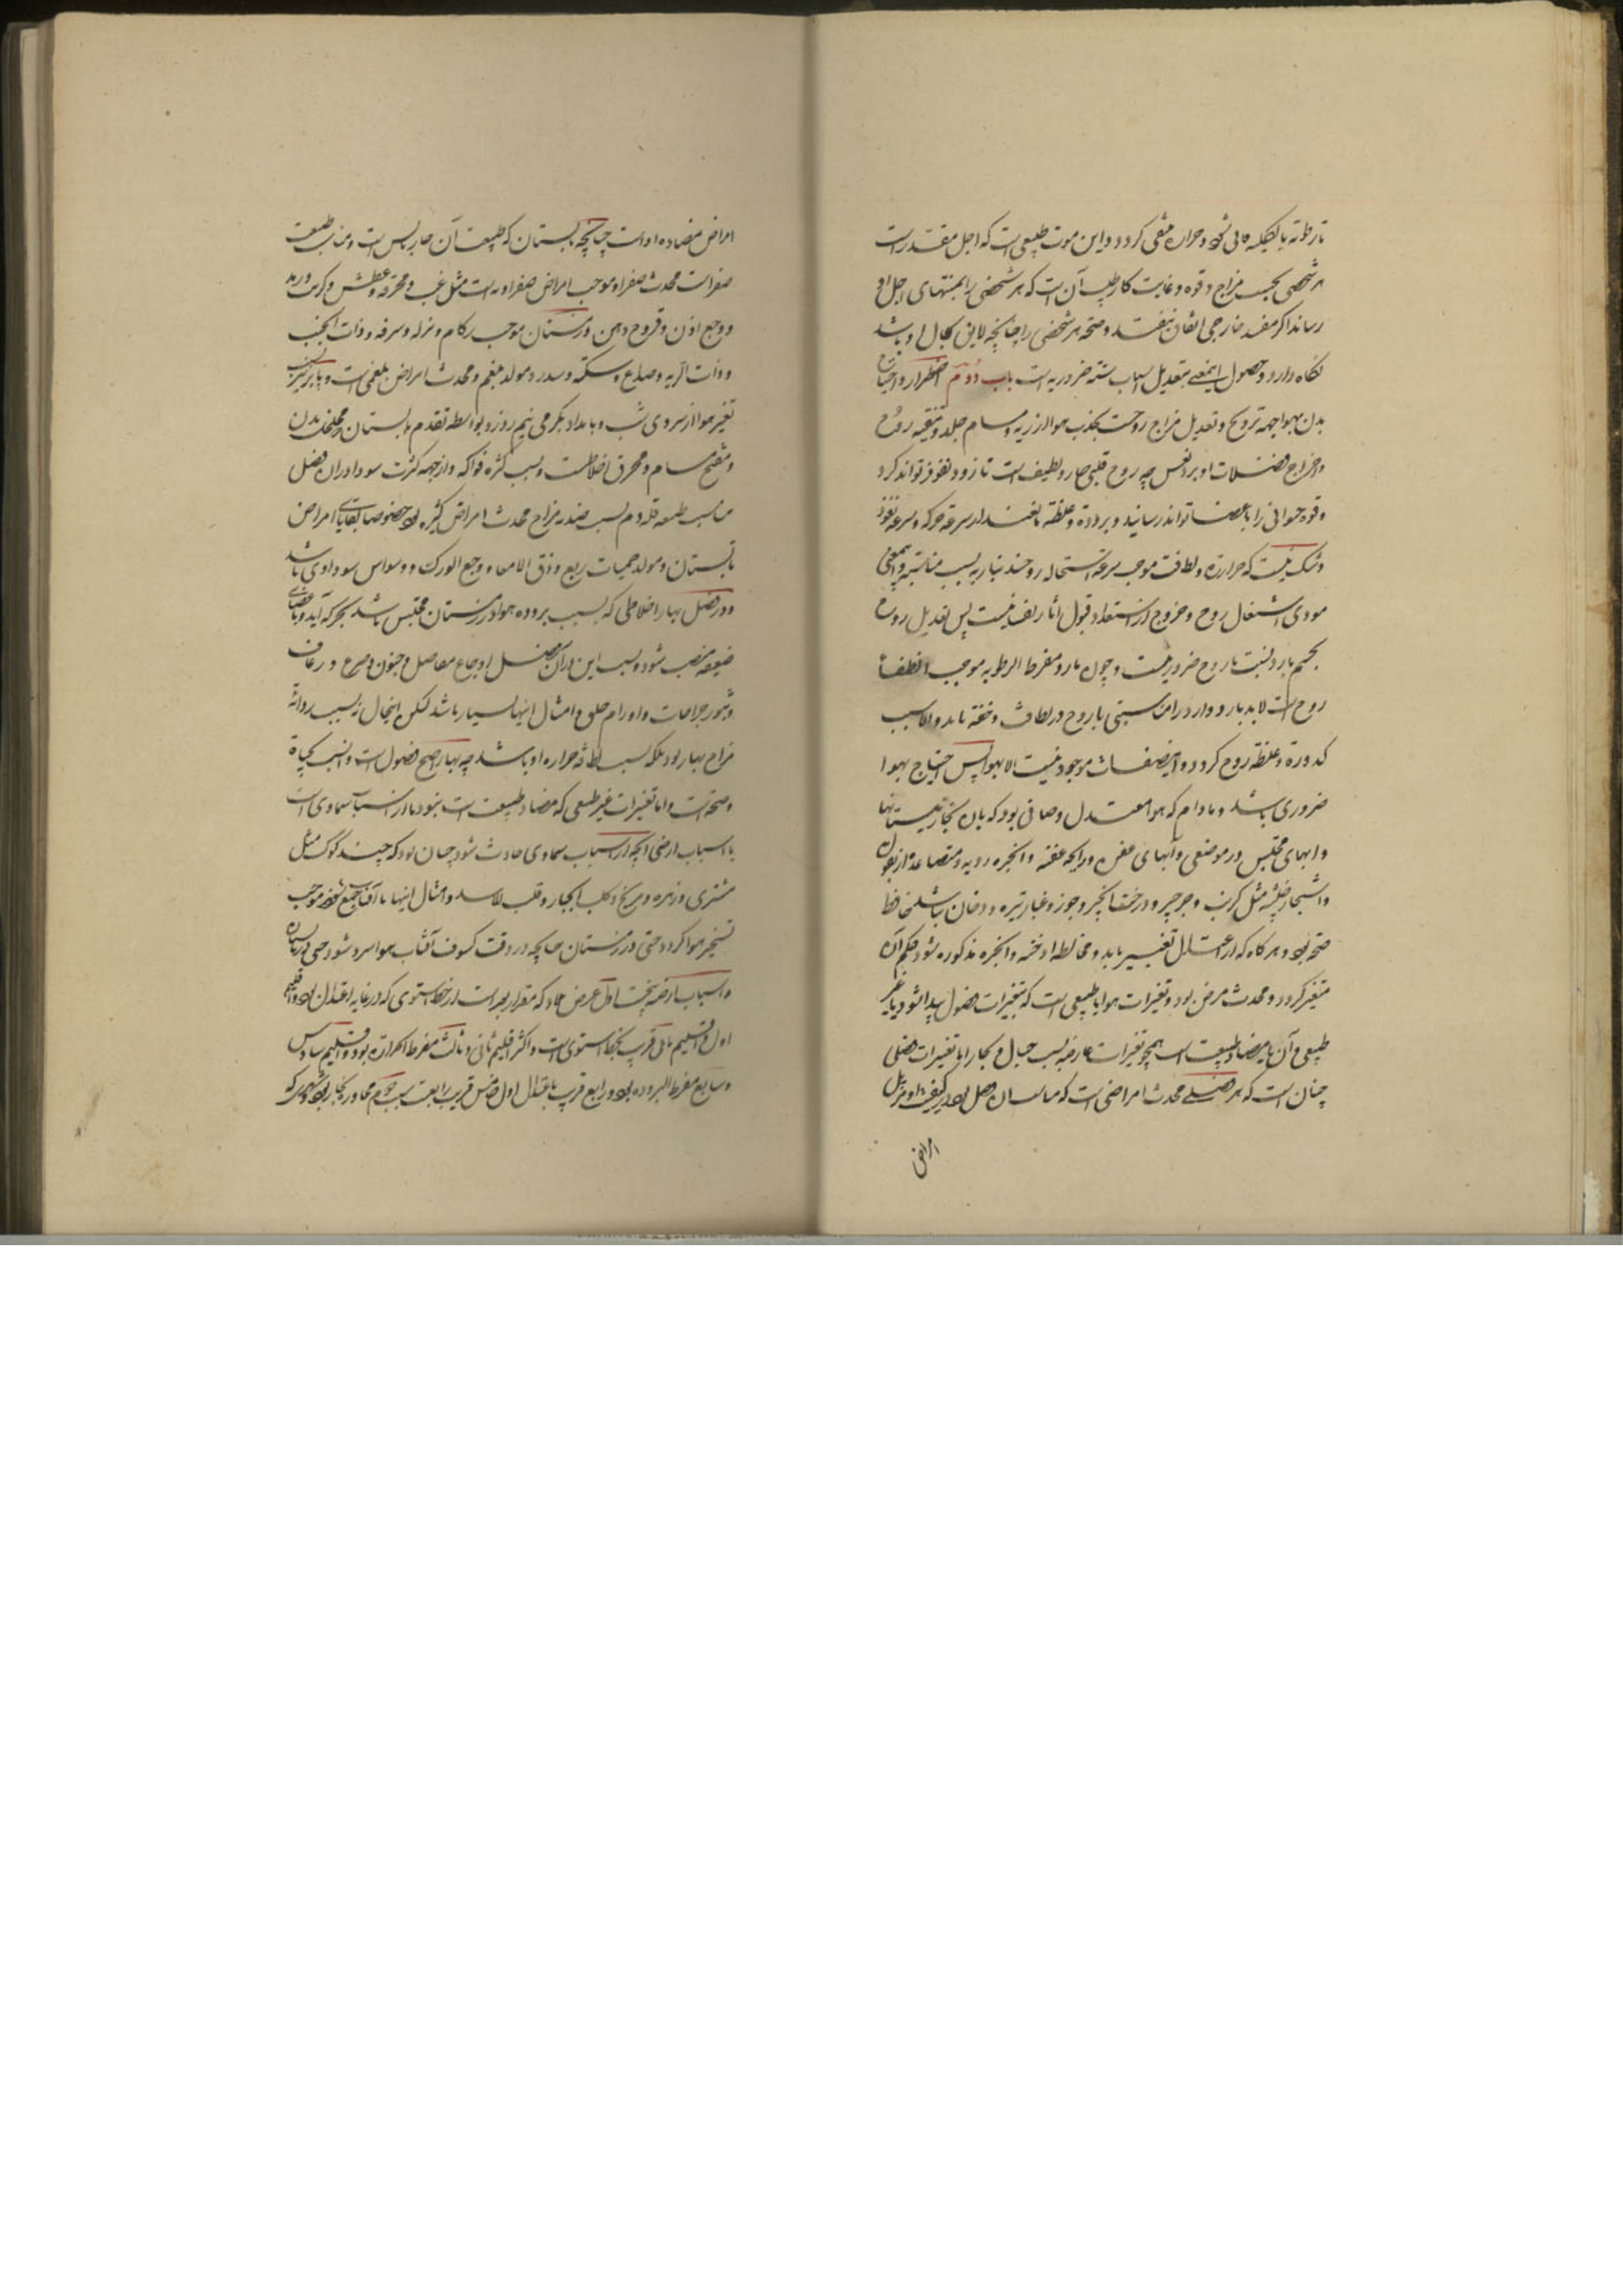 تا رطوبة بالکلیه فانی شود و حراره منفی کردد و این موت طبیعی است که اجل مقدر است
هر شخصی بحسب مزاج و قوه و غایت کار طبیب آن است که هر شخصی را بمنتهای اجل او
رساند اگر مفسد خارجی اتفاق نیفتد و صحة هر شخصی را چنانچه لایق بحال او باشد
نکاه دارد و حصول اینمعنی بتعدیل اسباب سته ضروریه است باب دوم اضطرار و احتیاج
بدن بهوا بجهة ترویح و تعدیل مزاج روحست بجذب هوا از ریه و مسام جلد و تنقیه روح
و اخراج فضلات او برد نفس چه روح قلبی حار و لطیف است تا زود نفوذ تواند کرد
و قوه حیوانی را باعضا تواند رسانید و برودة و غلظة مانعند از سرعة حرکه و سرعة نفوذ
و شک نیست که حرارة و لطافت موجب سرعة استحاله روحند بناریه بسبب مناسبة و اینمعنی
مودی اشتعال روح و خروج از استعداد قبول آثار نفس نیست پس تعدیل روح
بجسم بارد نسبت با روح ضروریست و چون بارد مفرط الرطوبه موجب انطفاء
روح است لابد بارد و
کدورة و غلظة روح کردد و اینصفات موجود نیست الا بهوا پس احتیاج بهوا
ضروری باشد و مادام که هوا معتدل و صافی بود که بان بخار نیستانها
و ابهای محتبس در موضعی و آبهای عفن و رایحه عفنه و ابخره ردیه و متصاعده از بقول
و اشجار خبیثه مثل کرنب و جرجیر و درخت انجیر و جوز و غبار تیره و دخان نباشد حافظ
صحه بود و هرکاه که از اعتدال تغییر یابد و مخالطه ادخنه و ابخره مذکوره شود حکم آن
متغیر کردد و محدث مرض بود و تغیرات هوا یا طبیعی است که بتغیرات فصول پیدا شود یا غیر
طبیعی و آن یا مضاد طبیعت است همچو تغیرات عارضه بسبب جبال و بحار اما تغیرات فصلی
چنان است که هر فصلی محدث امراضی است که مناسب آن فصل بود در کیفیت و مزیل
امراض
امراض مضاده او است چنانچه تابستان که طبیعت آن حار یابس است و مناسب طبیعت
صفراست محدث صفرا و موجب امراض صفراویه است مثل غب و محرقه و عطش و کرب و رمد
و وجع اذن و قروح دهن و زمستان موجب زکام و نزله و سرفه و ذات الجنب
و ذات الریه و صداع و سکته و سدر و مولد بلغم و محدث امراض بلغمی است و پاییز بسبب
تغیر هوا از سردی شب و بامداد بکرمی نیم روز و بواسطه تقدم تابستان و تخلخل بدن
و تفتیح مسام و محرق اخلاطست و بسبب کثرة فواکه و از جهة کثرت سودا در ان فصل
مناسب طبیعه قلة دم بسبب ضدیه مزاج محدث امراض کثیره بود خصوصا بقایای امراض
تابستان و مولد حمیات ربع و زلق الامعا و وجع الورک و وسواس سوداوی باشد
و در فصل بهار اخلاطی که بسبب بروده هوا در زمستان محتبس باشد بحرکه آید و باعضای
ضعیفه منصب شود و بسبب این در ان فصل اوجاع مفاصل و جنون و صرع و رعاف
و بثور و جراحات و اورام حلق و امثال اینها بسیار باشد لیکن اینحال نه بسبب ردائة
مزاج بهار بود بلکه بسبب لطافة حراره او باشد چه بهار اصح فصول است و انسب بحیاة
و صحت است و اما تغیرات غیر طبیعی که مضاد طبیعت است نبود یا از اسباب سماوی است
یا اسباب ارضی آنچه از اسباب سماوی حادث شود چنان بود که چند کوکب مثل
مشتری و زهره و مریخ و کلب الجبار و قلب الاسد و امثال اینها با آفتاب جمع شود موجب
تسخین هوا کردد حتی در زمستان چنانچه در وقت کسوف آفتاب هوا سرد شود حتی در تابستان
و اسباب ارضیه نخست اول عرض بلاد که مقدار بعد است از خط استوی که در غایه اعتدال بود و اقلیم
اول و اقلیم ثانی قریب بخط استوی است و اکثر اقلیم ثانی و ثالث مفرط الحرارة بود و اقلیم سادس
و سابع مفرط البروده بود و رابع قریب باعتدال اول و خامس قریب برابعست سبب دوم مجاورة بحار بود